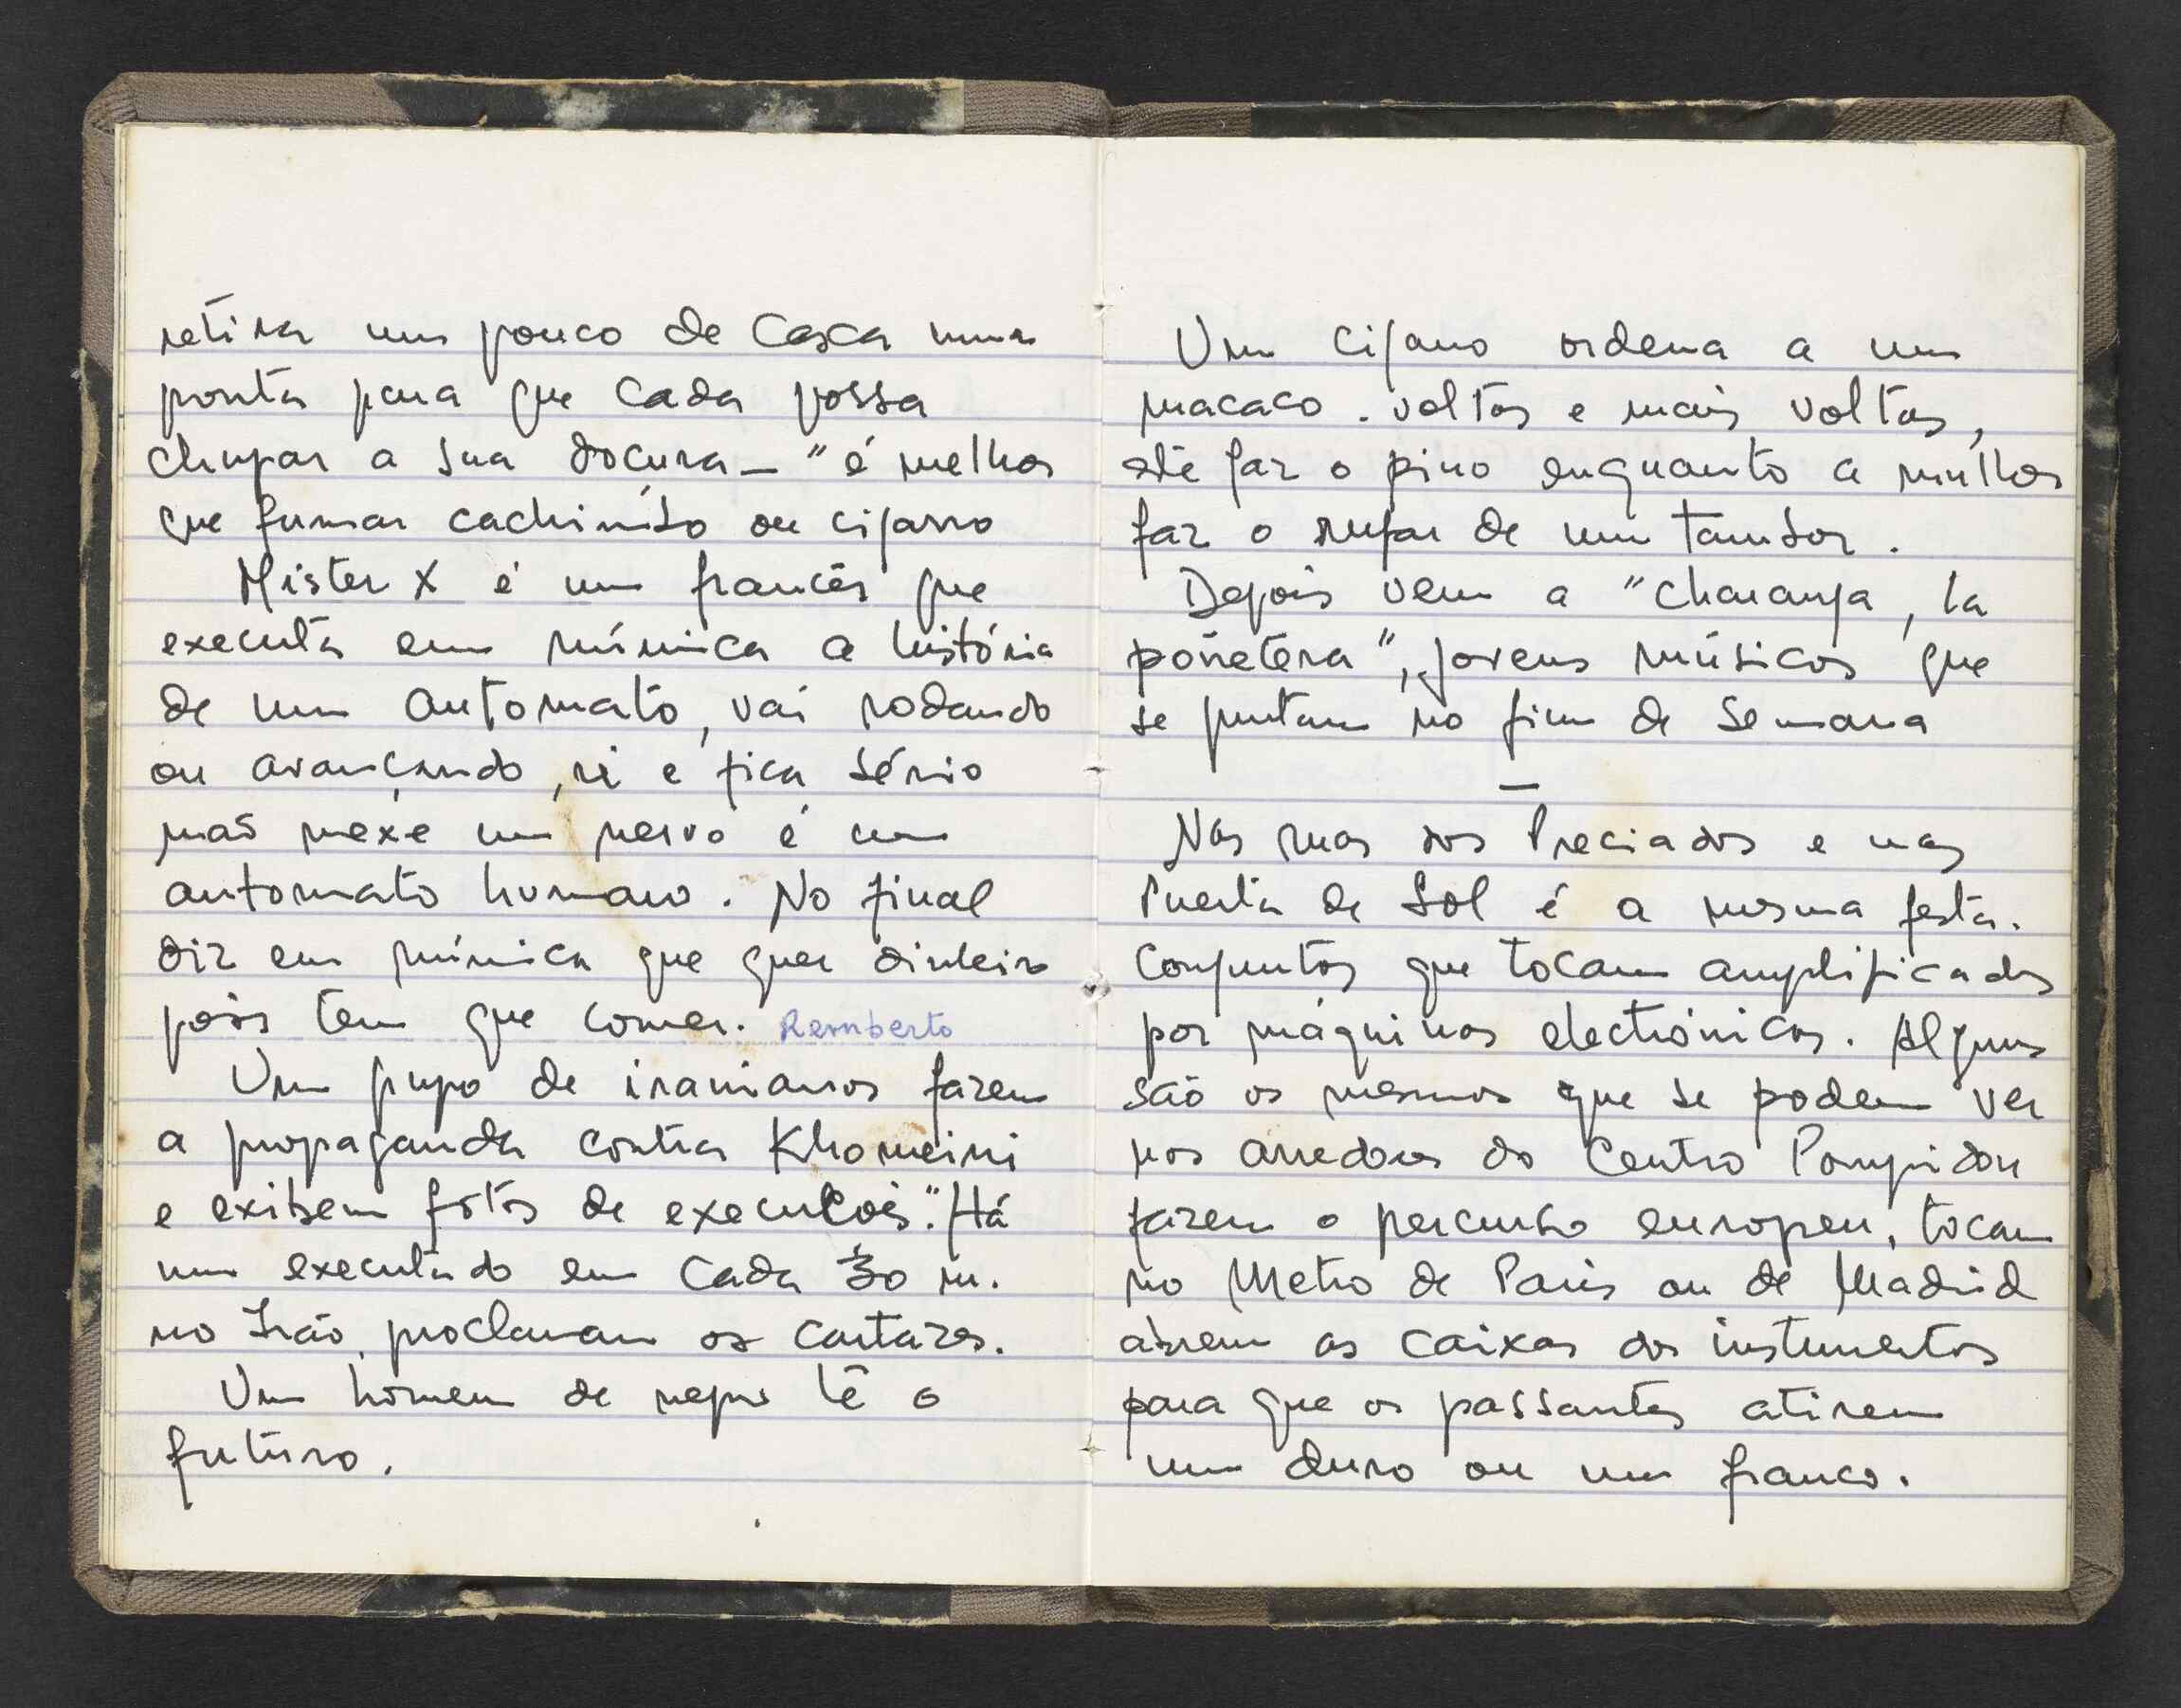 retira um pouco de casca numa
ponta para que cada possa
chupar a sua doçura — "é melhor
que fumar cachimbo ou cigarro
Mister X é um francês que
executa em mímica a história
de um automato, vai rodando
ou avançando, ri e fica sério
mas mexe um nervo é um
automato humano. No final
diz em mímica que quer dinheiro
pois tem que comer. Remberto
Um grupo de iranianos fazem
a propaganda contra Khomeini
e exibem fotos de execuções." Há
um executado em cada 30 m.
no Irão, proclamam os cartazes.
Um homem de negro lê o
futuro.
Um cigano ordena a um
macaco. voltas e mais voltas,
até faz o pino enquanto a mulher
faz o rufar de um tambor.
Depois vem a "charanga, la
poñetera", jovens músicos que
se juntam no fim de semana
—
Nas ruas dos Preciados e nas
Puerta de Sol é a mesma festa.
Conjuntos que tocam amplificados
por máquinas electrónicas. Alguns
são os mesmos que se podem ver
nos arredores do Centro Pompidou
fazem o percurso europeu, tocam
no Metro de Paris ou de Madrid
abrem as caixas dos instumentos
para que os passantes atirem
um duro ou um franco.